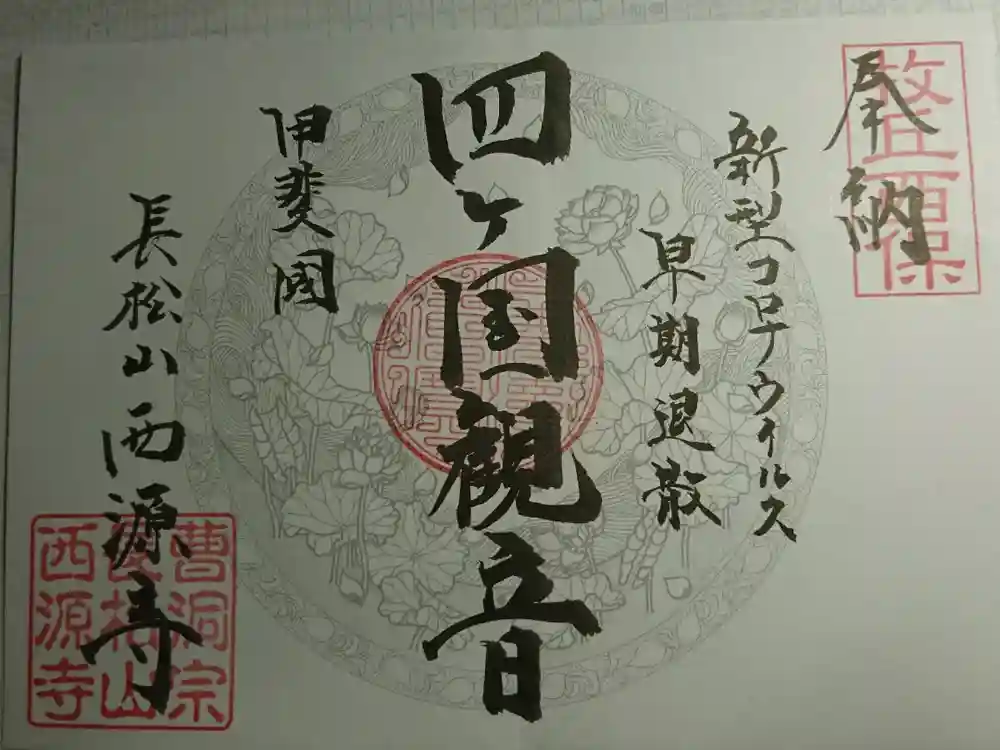 奉納
新型コロナウイルス
早期退散
四ヶ国観音
甲斐國
長松山西源寺
曹洞宗
長松山
西源寺